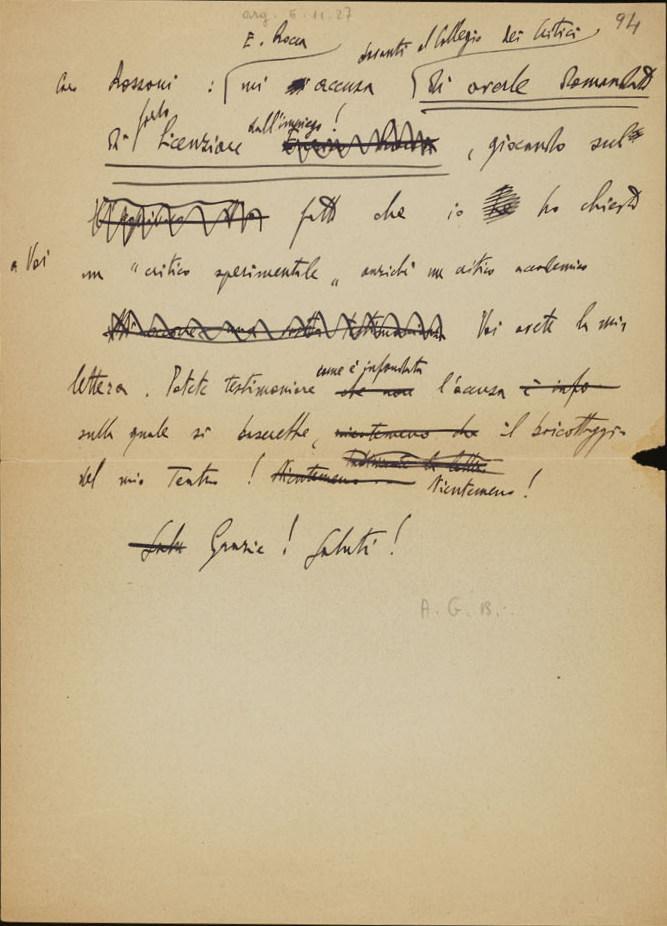 arg. 5.11.27
94
E. Rocca davanti al Collegio dei Critici
Caro Rossoni : mi accusa di averle domandato
fatto dall'impiego!
di licenziare , giocando sul
fatto che io ho chiesto
a Voi
un "critico sperimentale" anziché un critico accademico
Voi avete la mia
come è infondata
lettera. Potete testimoniare che non l'accusa è info
sulla quale si baserebbe, nientemeno che il boicottaggio
del mio Teatro! Nientemeno Nientemeno!
Salu Grazie! Saluti!
A. G. B.